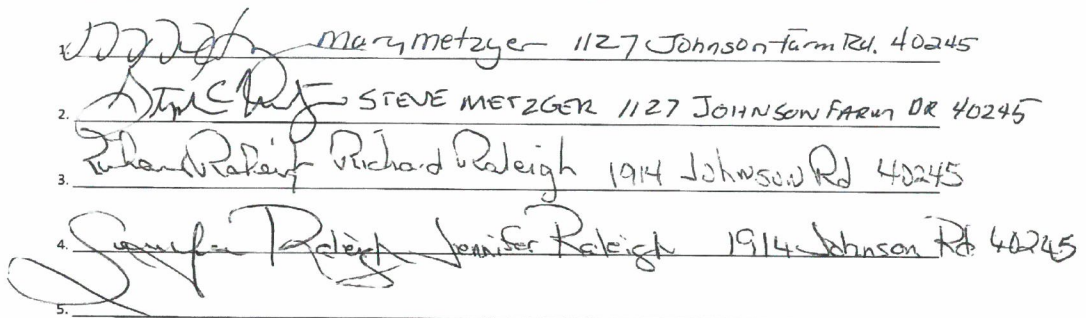 1. Mary Metzger 1127 Johnson Farm Rd. 40245
2. STEVE METZGER 1127 JOHNSON FARM DR 40245
3. Richard Raleigh Richard Raleigh 1914 Johnson Rd 40245
4. Jennifer Raleigh Jennifer Raleigh 1914 Johnson Rd. 40245
5.